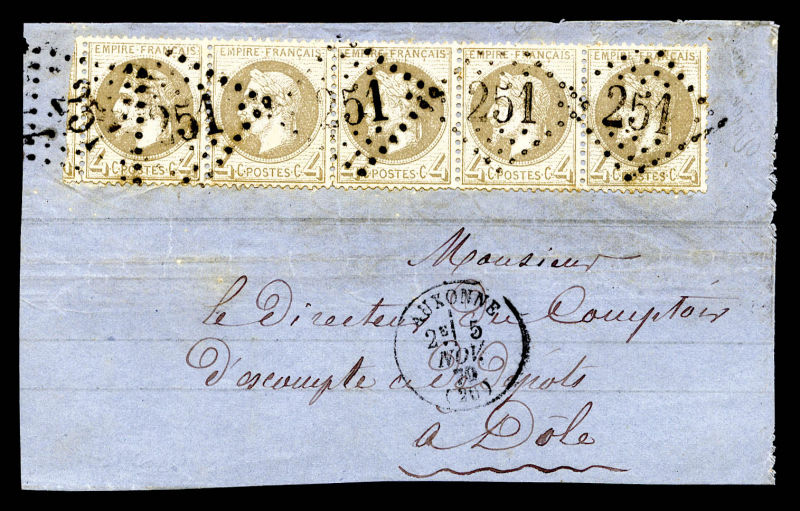 EMPIRE FRANÇAIS EMPIRE FRANÇAIS EMPIRE FRANÇAIS EMPIRE FRANÇAIS EMPIRE FRANÇAIS
251 251 51 251 251
4 C·POSTES·C 4 4 C·POSTES·C 4 4 C·POSTES·C 4 4 C·POSTES·C 4 4 C·POSTES·C 4
Monsieur
le Directeur du Comptoir
d'escompte et Dépôts
a Dôle
AUXONNE
2E 5
NOV.
70
(20)